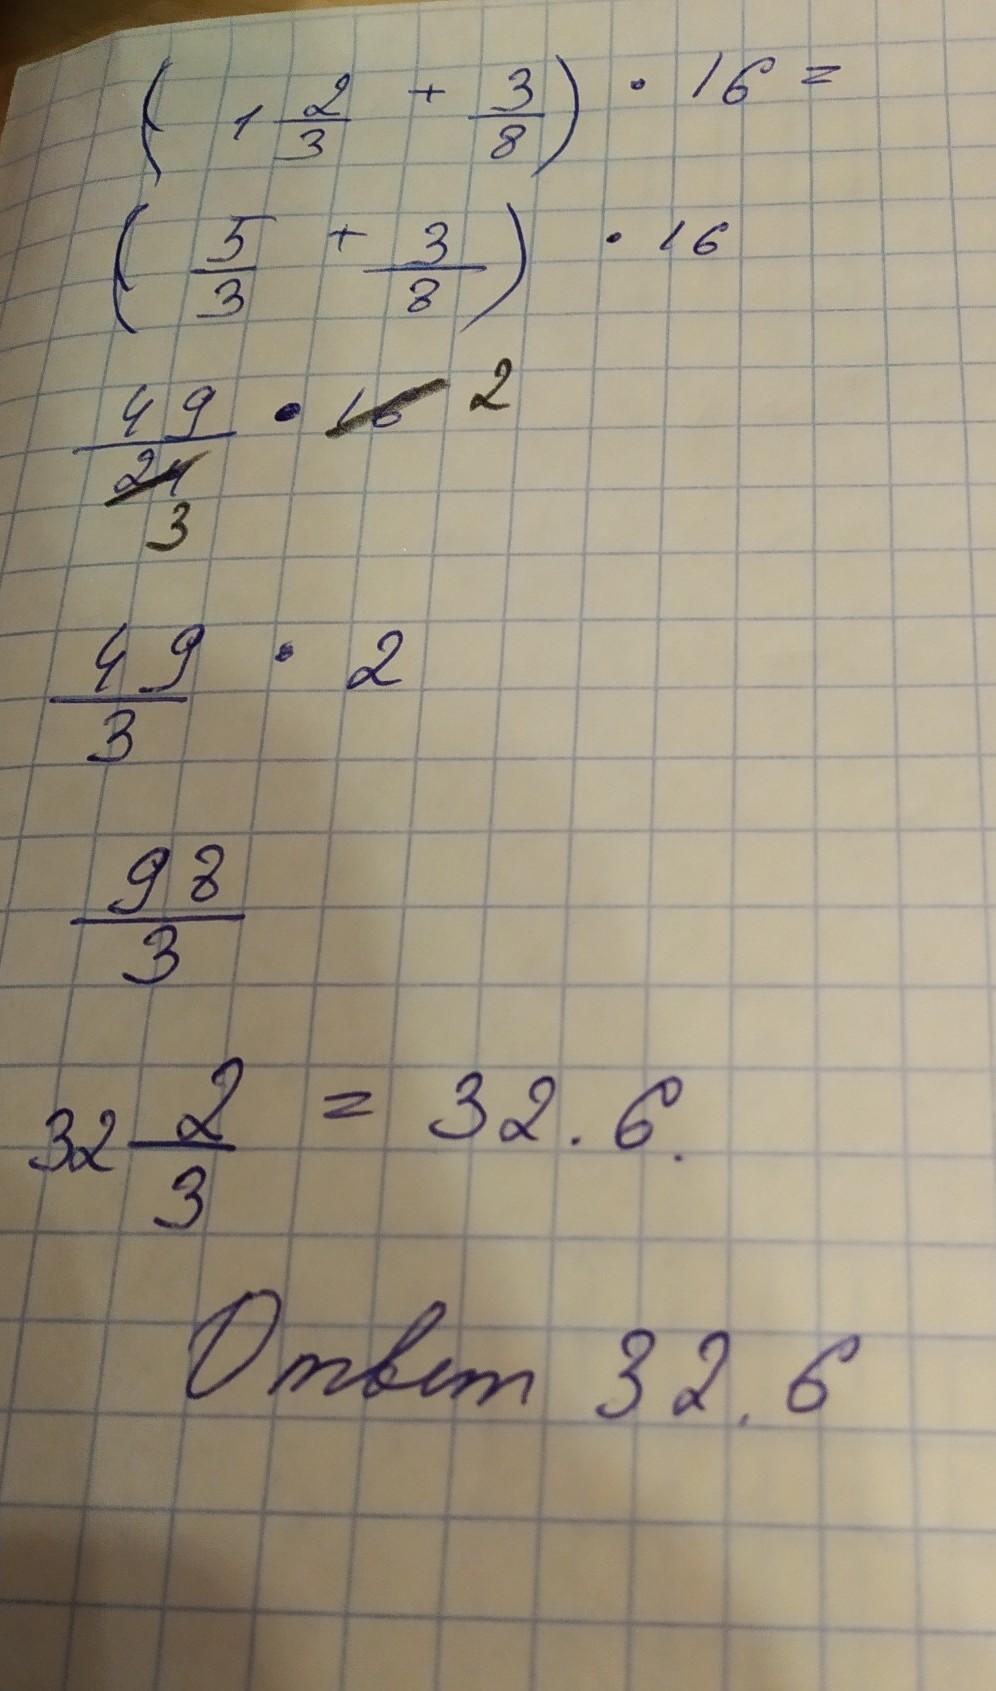 (1 2/3 + 3/8) · 16 =
(5/3 + 3/8) · 16
49/24 · 16 2
3
49/3 · 2
98/3
32 2/3 = 32.6.
Ответ 32.6